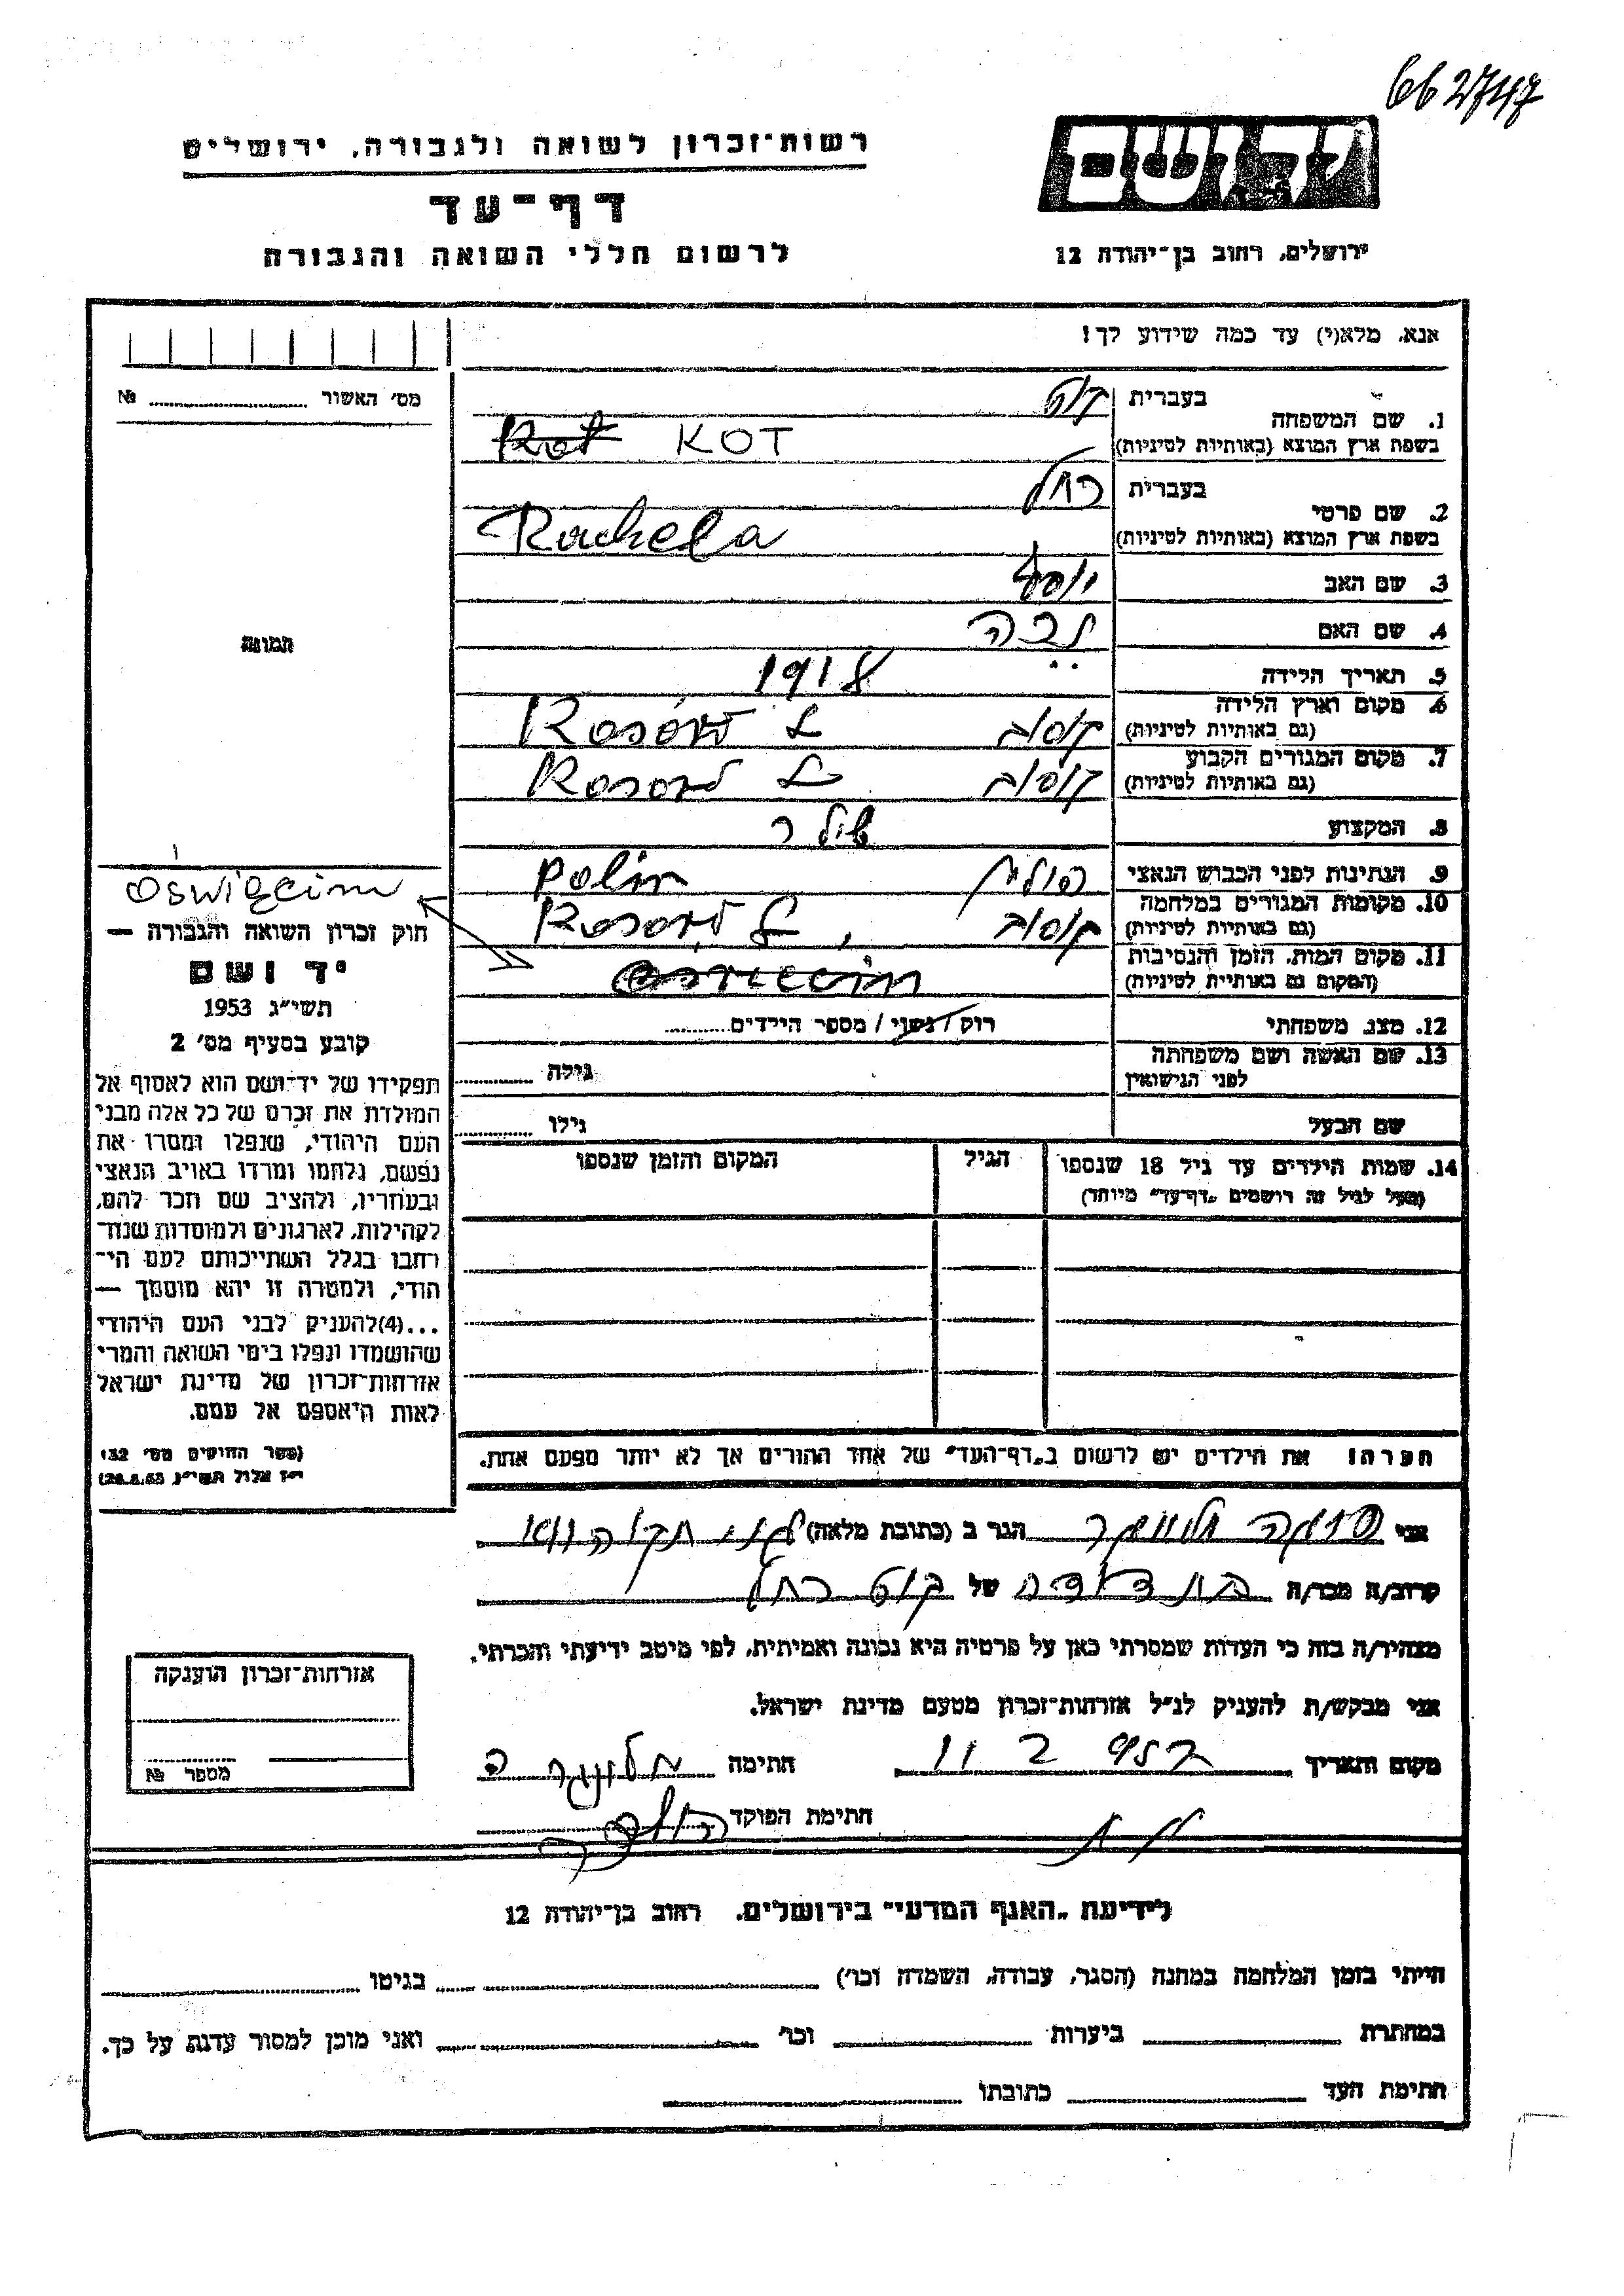 662747
רשות־זכרון לשואה ולגבורה, ירושלים
דף־עד
לרשום חללי השואה והגבורה
יד ושם
ירושלים, רחוב בן־יהודה 12
אנא, מלא(י) עד כמה שידוע לך!
מס' האשור № 
1. שם המשפחה בעברית קוט
בשפת ארץ המוצא (באותיות לטיניות) Kot KOT
2. שם פרטי בעברית רחל
בשפת ארץ המוצא (באותיות לטיניות) Rachela
3. שם האב יוסף
4. שם האם
5. תאריך הלידה 1918
6. מקום וארץ הלידה קוסוב
(גם באותיות לטיניות)
7. מקום המגורים הקבוע קוסוב
(גם באותיות לטיניות)
8. המקצוע
9. הנתינות לפני הכבוש הנאצי פולין Polin
10. מקומות המגורים במלחמה קוסוב
(גם באותיות לטיניות)
11. מקום המות, הזמן והנסיבות
(המקום גם באותיות לטיניות)
12. מצב משפחתי רוק / נשוי / מספר הילדים
13. שם האשה ושם משפחתה
לפני הנישואין גילה
שם הבעל גילו
14. שמות הילדים עד גיל 18 שנספו הגיל המקום והזמן שנספו
(מעל לגיל זה רושמים "דף־עד" מיוחד)
הערה: את הילדים יש לרשום ב"דף־העד" של אחד ההורים אך לא יותר מפעם אחת.
תמונה
oswięcim
חוק זכרון השואה והגבורה —
יד ושם
תשי"ג 1953
קובע בסעיף מס' 2
תפקידו של יד־ושם הוא לאסוף אל
המולדת את זכרם של כל אלה מבני
העם היהודי, שנפלו ומסרו את
נפשם, נלחמו ומרדו באויב הנאצי
ובעוזריו, ולהציב שם וזכר להם,
לקהילות, לארגונים ולמוסדות שנח־
רבו בגלל השתייכותם לעם הי־
הודי, ולמטרה זו יהא מוסמך —
...(4) להעניק לבני העם היהודי
שהושמדו ונפלו בימי השואה והמרי
אזרחות־זכרון של מדינת ישראל
לאות היאספם אל עמם.
(ספר החוקים מס' 132
י"ז אלול תשי"ג 28.8.53)
אני הגר ב (כתובת מלאה)
קרוב/ה מכר/ה בת דודה של קוט רחל
מצהיר/ה בזה כי העדות שמסרתי כאן על פרטיה היא נכונה ואמיתית, לפי מיטב ידיעתי והכרתי.
אני מבקש/ת להעניק לנ"ל אזרחות־זכרון מטעם מדינת ישראל.
מקום ותאריך 11 2 חתימה
חתימת הפוקד
אזרחות־זכרון הוענקה
מספר №
לידיעת "האגף המדעי" בירושלים. רחוב בן־יהודה 12
הייתי בזמן המלחמה במחנה (הסגר, עבודה, השמדה וכו') בגיטו
במחתרת ביערות וכו' ואני מוכן למסור עדות על כך.
חתימת העד כתובתו